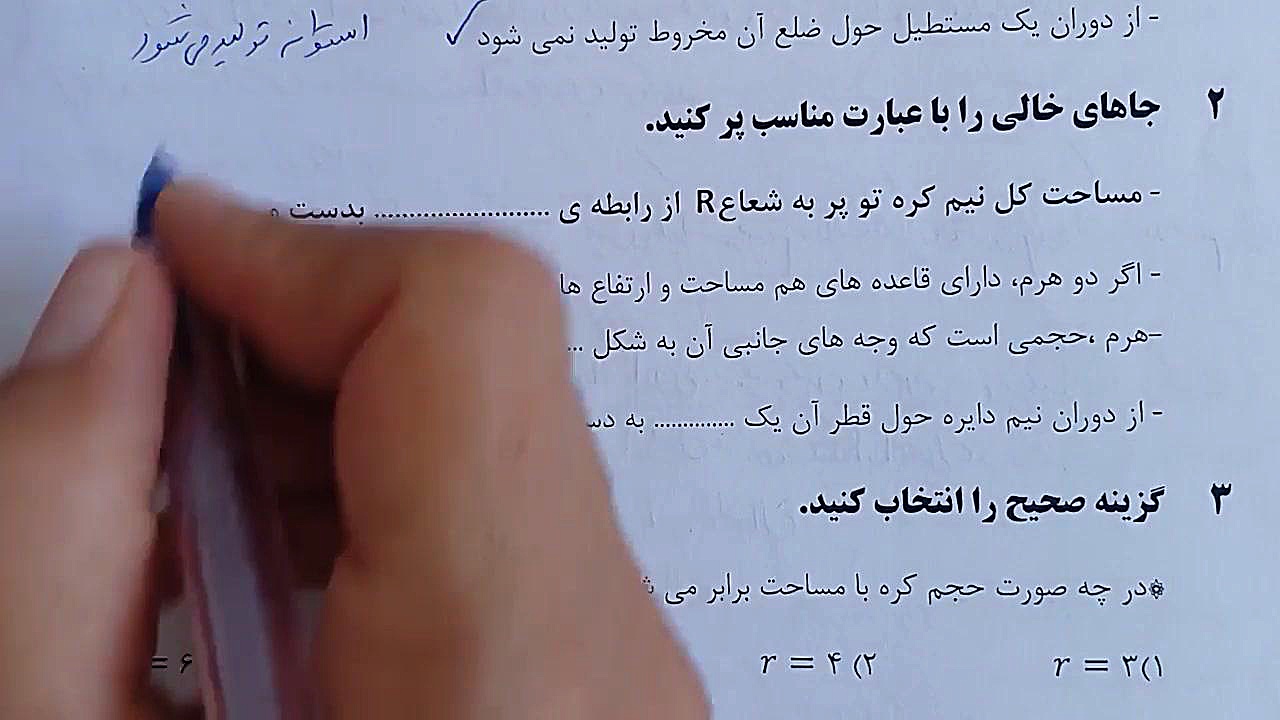 - از دوران یک مستطیل حول ضلع آن مخروط تولید نمی شود ✓ استوانه تولید می شود
۲ جاهای خالی را با عبارت مناسب پر کنید.
- مساحت کل نیم کره تو پر به شعاع R از رابطه ی ......................... بدست
- اگر دو هرم، دارای قاعده های هم مساحت و ارتفاع ها
-هرم ،حجمی است که وجه های جانبی آن به شکل ...
- از دوران نیم دایره حول قطر آن یک .............. به
۳ گزینه صحیح را انتخاب کنید.
*در چه صورت حجم کره با مساحت برابر می
۱) r = ۳ ۲) r = ۴ = ۶